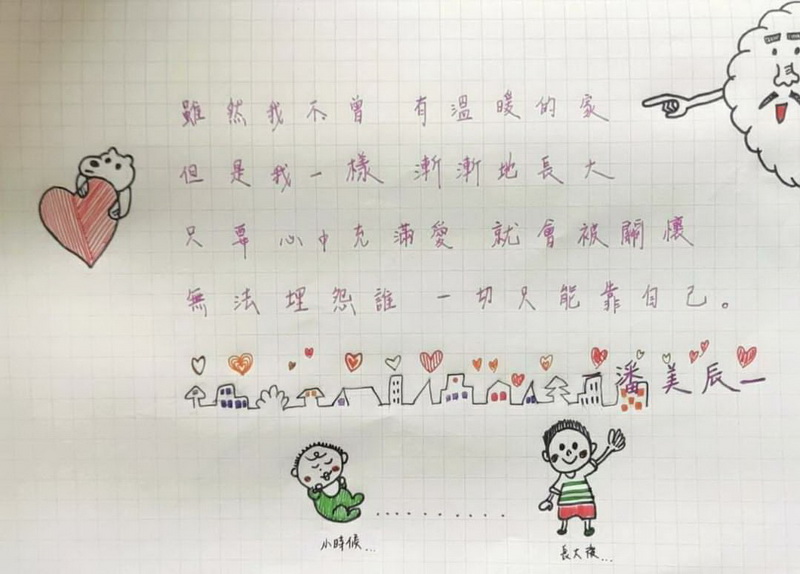 雖然我不曾 有溫暖的家
但是我一樣 漸漸地長大
只要心中充滿愛 就會被關懷
無法埋怨誰 一切只能靠自己。
潘美辰—
小時候...
長大後...